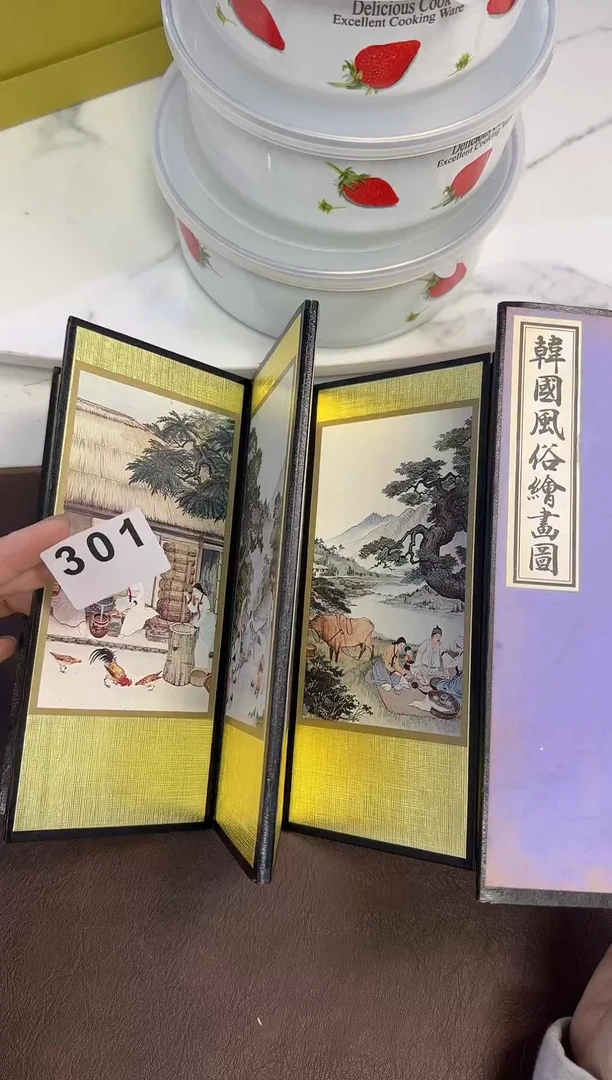 Delicious Cook
Excellent Cooking Ware
Excellent Cooking
301
韓國風俗繪畫圖